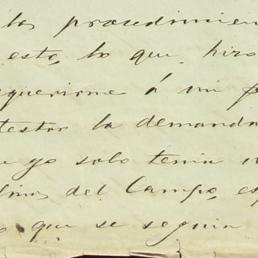 los procedimien
esto, lo que hizo
querirme á mi p
testar la demanda
yo solo tenia
del Campo, es
que se seguia